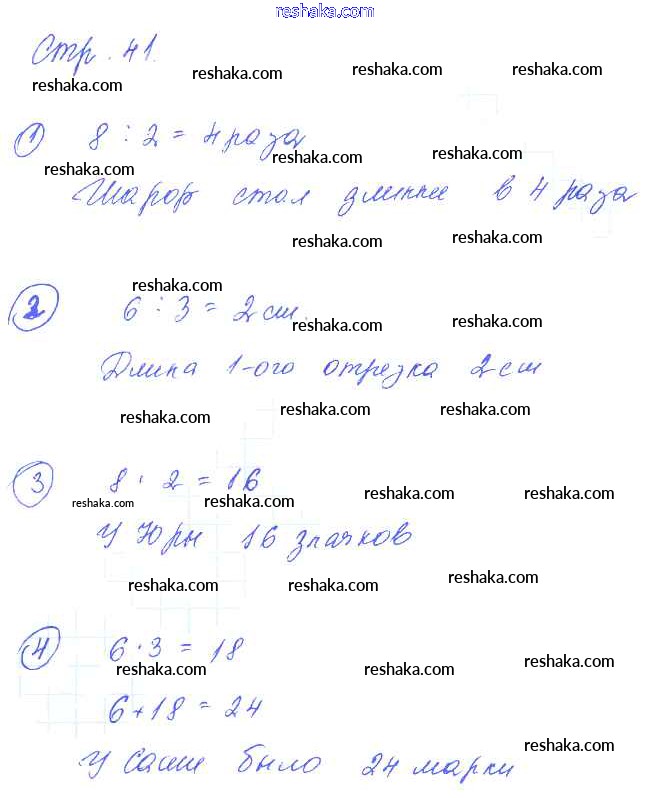 reshaka.com
Стр. 41.
reshaka.com reshaka.com reshaka.com reshaka.com
1 8 : 2 = 4 раза
reshaka.com reshaka.com reshaka.com
Шарф стал длиннее в 4 раза
reshaka.com reshaka.com
reshaka.com
2 6 : 3 = 2 см.
reshaka.com reshaka.com
Длина 1-ого отрезка 2 см
reshaka.com reshaka.com reshaka.com
3 8 · 2 = 16
reshaka.com reshaka.com reshaka.com reshaka.com
У Юры 16 значков
reshaka.com reshaka.com reshaka.com
4 6 · 3 = 18
reshaka.com reshaka.com reshaka.com
6 + 18 = 24
У Саши было 24 марки
reshaka.com